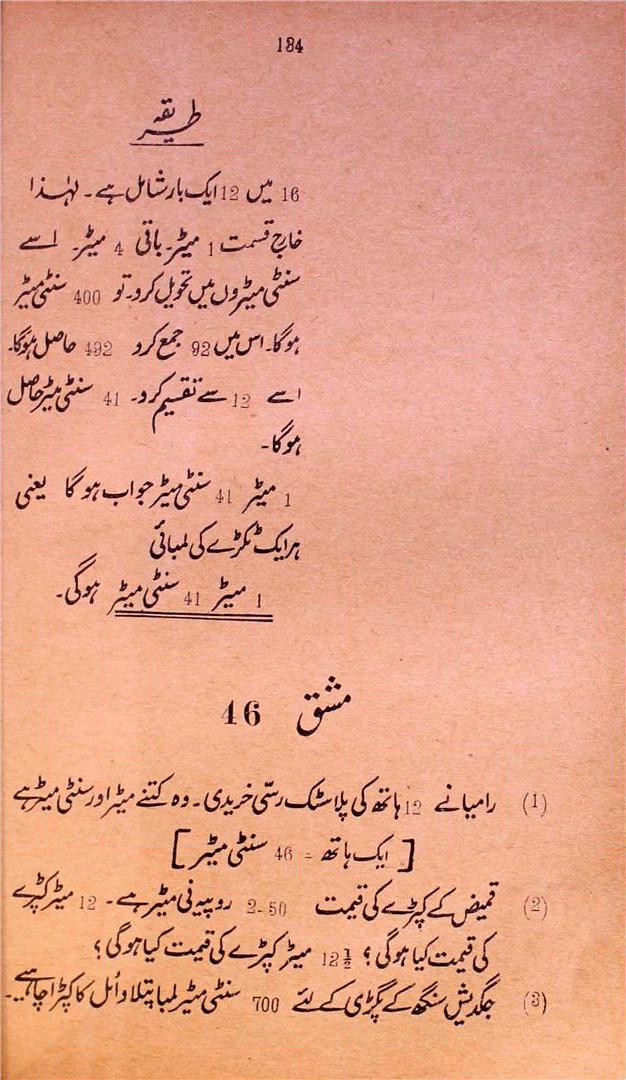 184
طریقہ
16 میں 12 ایک بار شامل ہے۔ لہٰذا
خارج قسمت 1 میٹر۔ باقی 4 میٹر۔ اسے
سنٹی میٹروں میں تحویل کرو۔ تو 400 سنٹی میٹر
ہوگا۔ اس میں 92 جمع کرو 492 حاصل ہوگا۔
اسے 12 سے تقسیم کرو۔ 41 سنٹی میٹر حاصل
ہوگا۔
1 میٹر 41 سنٹی میٹر جواب ہوگا یعنی
ہر ایک ٹکڑے کی لمبائی
1 میٹر 41 سنٹی میٹر ہوگی۔
مشق 46
(1) رامیا نے 12 ہاتھ کی پلاسٹک رسّی خریدی۔ وہ کتنے میٹر اور سنٹی میٹر ہے
[ایک ہاتھ = 46 سنٹی میٹر]
(2) قمیض کے کپڑے کی قیمت 2-50 روپیہ فی میٹر ہے۔ 12 میٹر کپڑے
کی قیمت کیا ہوگی؟ 12½ میٹر کپڑے کی قیمت کیا ہوگی؟
(3) جگدیش سنگھ کے پگڑی کے لئے 700 سنٹی میٹر لمبا پتلا وائل کا کپڑا چاہیے۔